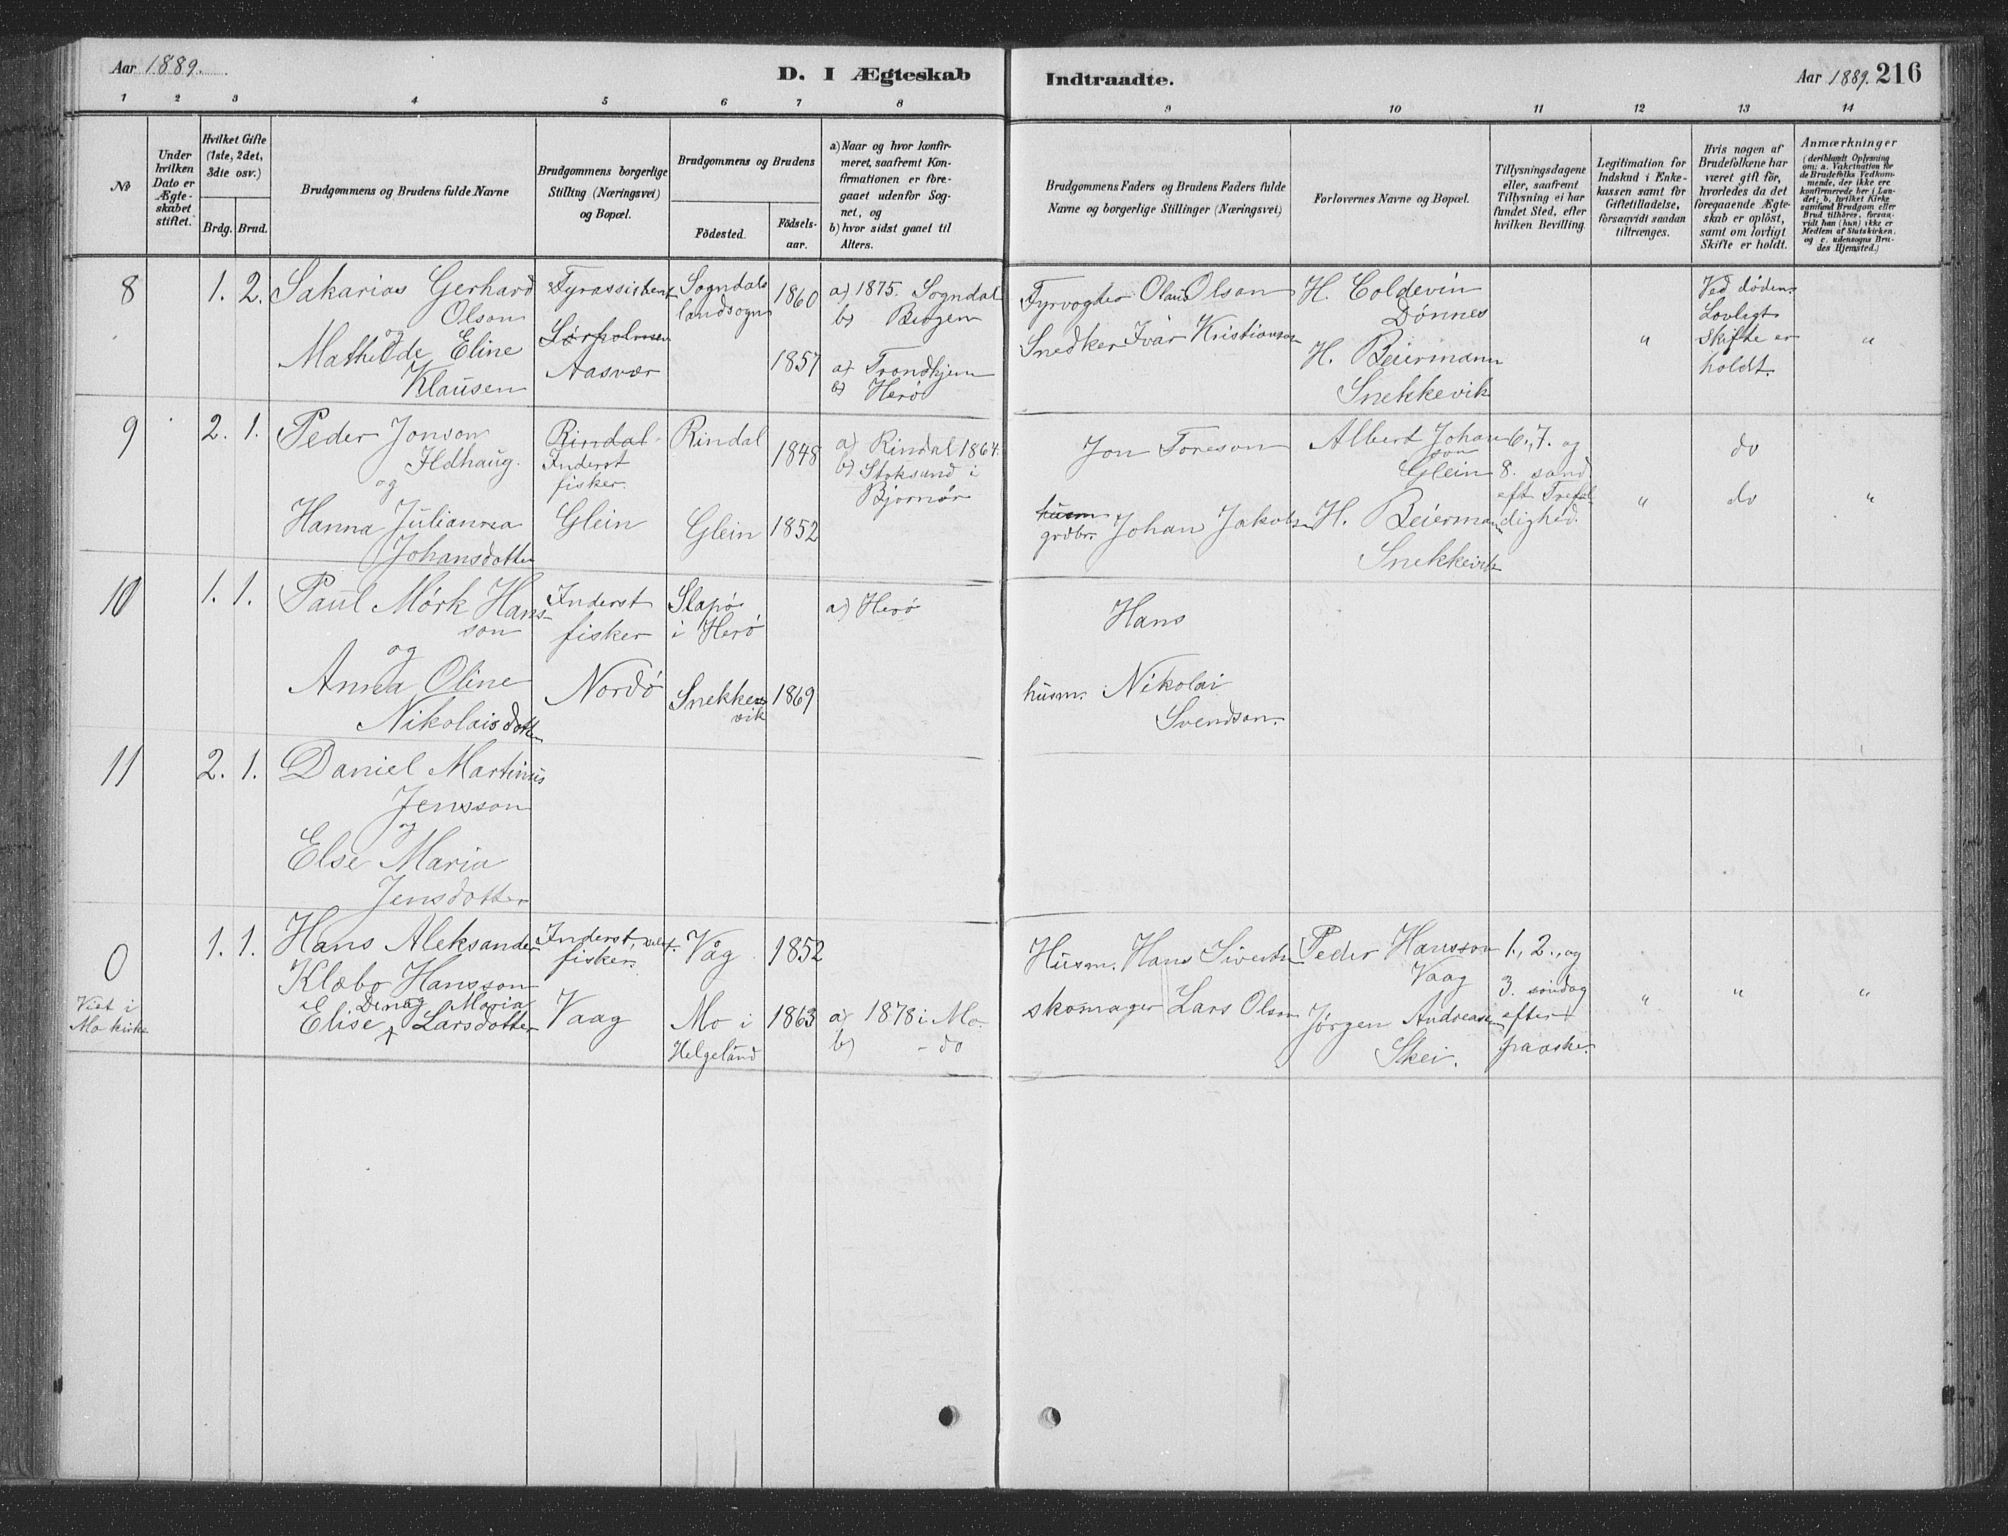 Aar 1889.
D. I Ægteskab
Indtraadte.
Aar 1889. 216
1 2 3 4 5 6 7 8
9 10 11 12 13 14
No
Under hvilken Dato er Ægteskabet stiftet.
Hvilket Gifte (1ste, 2det, 3die osv.)
Brdg. Brud.
Brudgommens og Brudens fulde Navne
Brudgommens borgerlige Stilling (Næringsvei) og Bopæl.
Brudgommens og Brudens
Fødested.
Fødselsaar.
a) Naar og hvor konfirmeret, saafremt Konfirmationen er foregaaet udenfor Sognet, og
b) hvor sidst gaaet til Alters.
Brudgommens Faders og Brudens Faders fulde Navne og borgerlige Stillinger (Næringsvei)
Forlovernes Navne og Bopæl.
Tillysningsdagene eller, saafremt Tillysning ei har fundet Sted, efter hvilken Bevilling.
Legitimation for Indskud i Enkekassen samt for Giftetilladelse, forsaavidt saadan tiltrænges.
Hvis nogen af Brudefolkene har været gift før, hvorledes da det foregaaende Ægteskab er opløst, samt om lovligt Skifte er holdt.
Anmærkninger
(deriblandt Oplysning om: a. Vakcination for de Brudefolks Vedkommende, der ikke ere konfirmerede her i Landet; b. hvilket Kirkesamfund Brudgom eller Brud tilhører, forsaavidt han (hun) ikke er Medlem af Statskirken, og c. udensogns Brudes Hjemsted.)
8
1. 2.
Sakarias Gerhard
Olson
og
Mathilde Eline
Klausen
Fyrassistent
Sørholmen
Aasvær
Sogndals
landsogn
1860
1857
a) 1875. Sogndal
b) Bergen
a) Trondhjem
b) Herø
Fyrvogter Olaus Olson
Snedker Ivar Kristianson
H. Coldevin
Dønnes
H. Beiermann
Snekkevik
"
Ved døden.
Lovligt
Skifte er
holdt.
"
9
2. 1.
Peder Jonson
Ildhaug.
og
Hanna Julianna
Johansdotter
Rindal
Inderst
fisker.
Glein
Rindal
Glein
1848
1852
a) Rindal 1864.
b) Stoksund i
Bjørnør
Jon Toreson
husm
grdbr. Johan Jakobs
Albert Johan
son
Glein
H. Beierman
Snekkevik
6., 7. og
8. sønd
eft Trefol
dighed.
"
do
do
"
10
1. 1.
Paul Mørk Hans-
son
og
Anna Oline
Nikolaisdotter
Inderst
fisker
Nordø
Slapø
i Herø
Snekke
vik
1869
a) Herø
Hans
husm. Nikolai
Svendson.
11
2. 1.
Daniel Martinus
Jensson
og
Else Maria
Jensdotter
0
Viet i
Mo kirke
1. 1.
Hans Aleksander
Klæbo Hansson
og
Dina Maria
Elise Larsdotter
Inderst,
fisker.
Vaag
Våg
Mo i
Helgeland
1852
1863
a) 1878 i Mo.
b) - do
Husm. Hans Sivertsn
skomager Lars Olson
Peder Hansson
Vaag
Jørgen Andreasen
Skei.
1., 2., og
3. søndag
efter
paaske.
"
"
"